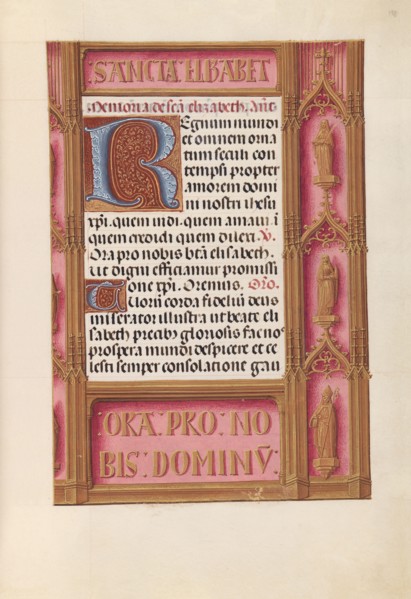 SANCTA ELISABET
Memoria de scā elizabeth. Ant
Regnum mundi
et omnem orna
tum seculi con
tempsi propter
amorem domi
ni nostri ihesu
xpi. quem vidi. quem amavi. i
quem credidi quem dilexi. V.
Ora pro nobis btā elisabeth.
Ut digni efficiamur promissi
one xpi. Oremus. Oro.
Tuorum corda fideliū deus
miserator illustra ut beate eli
sabeth precibꝫ gloriosis fac nos
prospera mundi despicere et ce
lesti semper consolatione gau
ORA PRO NO
BIS DOMINV̄